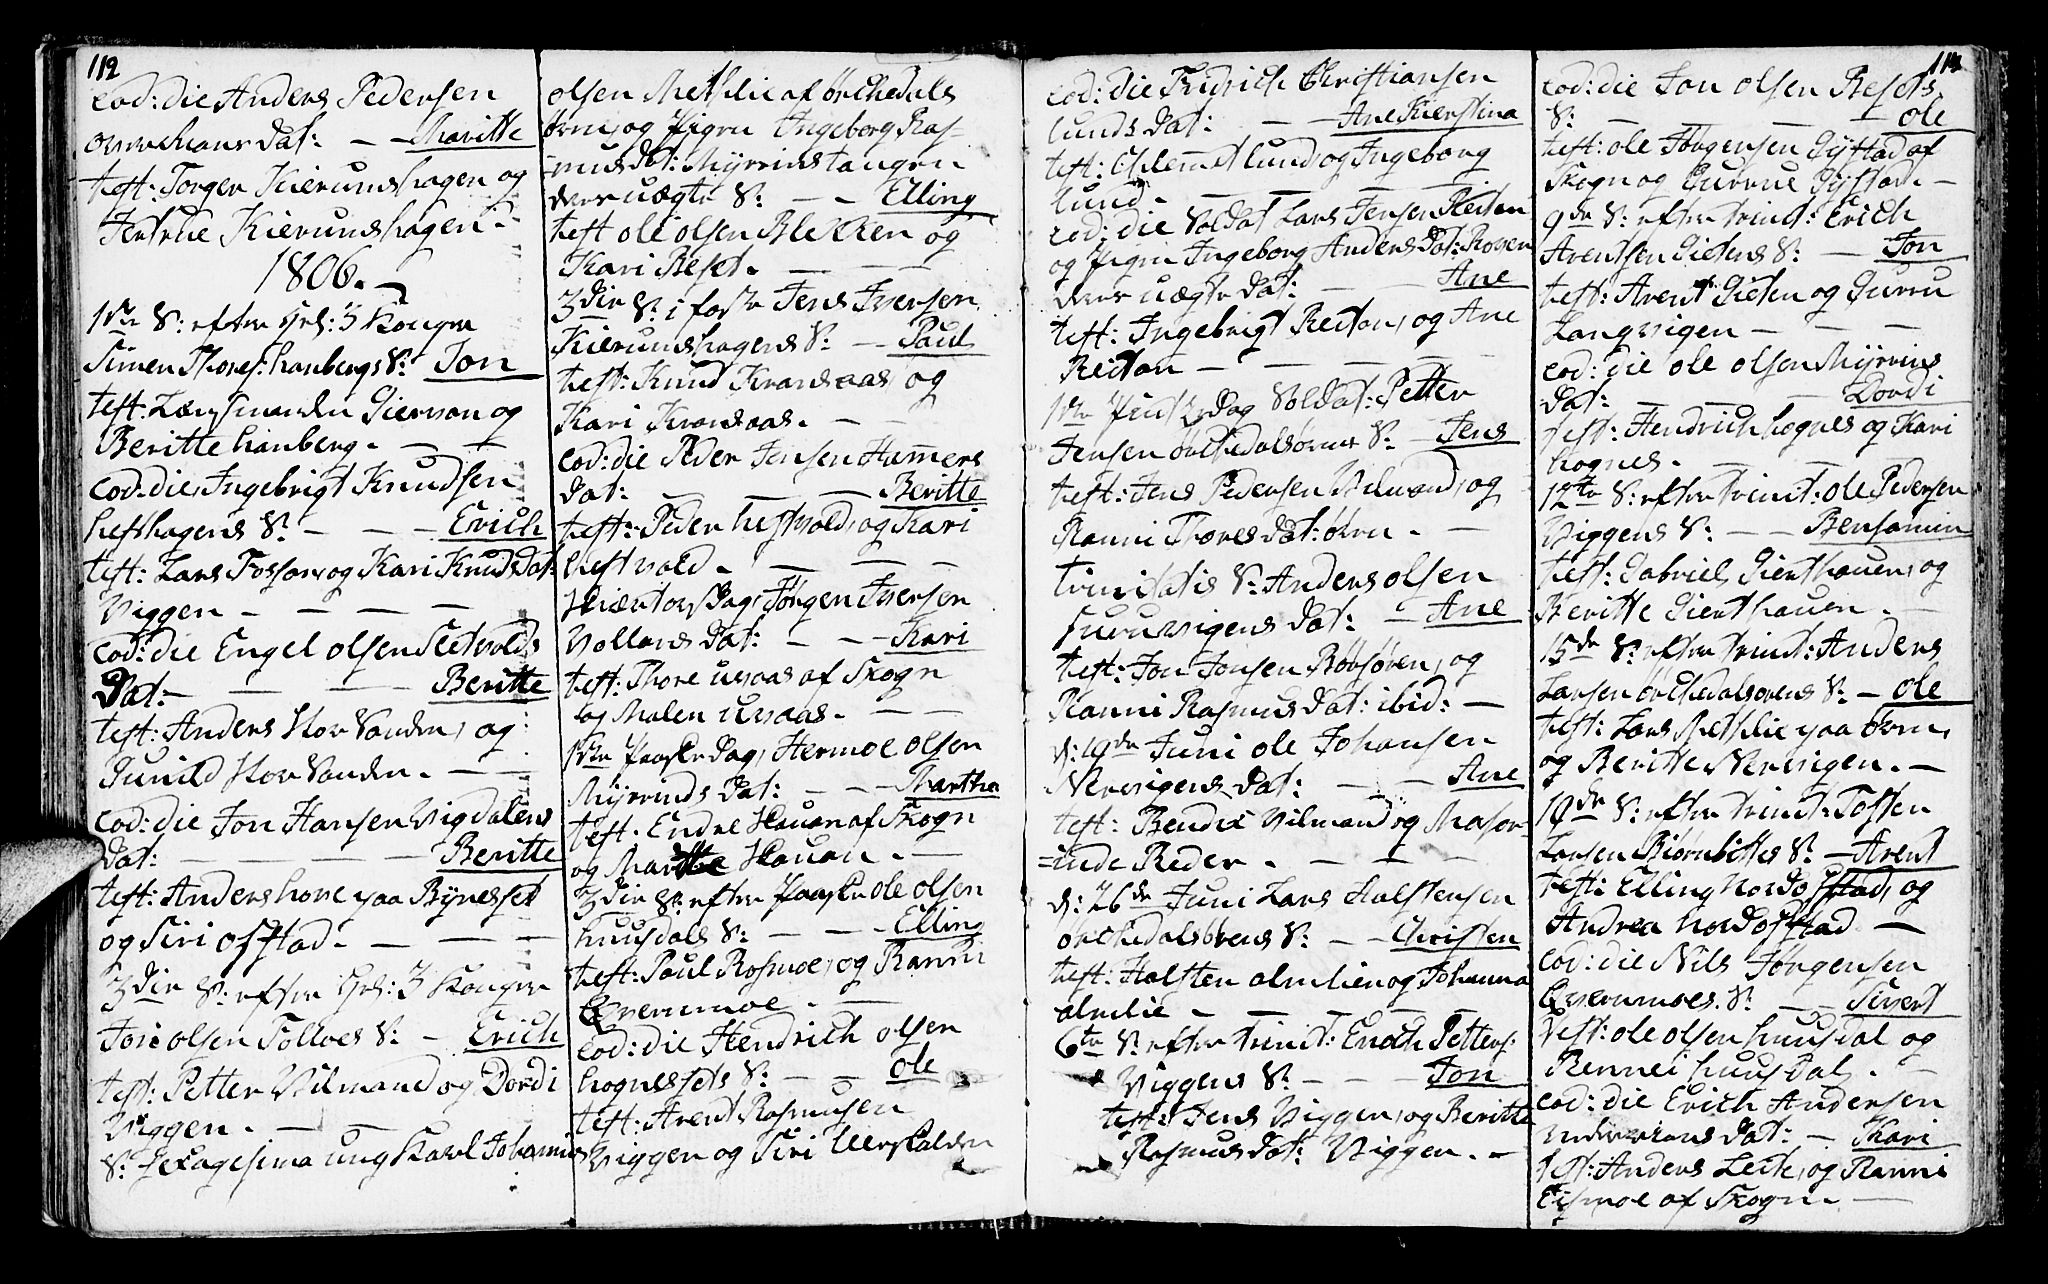 112
eod: die Anders Pedersen
dat: — — Maritte
test: Torger Kierumshagen og
Jertrue Kierumshagen. -
1806.
1ste S: efter Hel: 3 Konger
Simen Thores: hanbergs S: Jon
test: Lensmanden Gierson og
Beritte hanberg. — —
eod: die, Ingebrigt Knudsen
hefthagens S: — — — Erich
test: Lars Fossan, og Kari Knudsdat:
Viggen — — — —
eod: die Engel olsen Sletvolds
Dat: — — — — Beritte
test: Anders Hov Sanden, og
Gunild Hov Sanden. — —
eod: die Jon Hansen Vigdalens
Dat: — — — — Beritte
test: Anders hove paa Bynesset
og Siri ofstad. — — —
3die S: efter Hel: 3 Konger
Jon olsen Tollves S: — Erich
test: Petter Vilmand og Dordi
Viggen. — —
S: Sexagesima ung Karl Johannes
olsen Metslie af örchedals
örens og Pigen Ingeborg Ras=
=mus dat: Myrrinstangen
deres uægte S: — — Elling
test ole olsen Blekken og
Kari Reset. — — —
3die S: i faste Jens Iversen
Kierumshagens S: — Paul
test: Knud Kraasaas, og
Kari Kraasaas. — —
eod: die Peder Jensen Ham̄ers
Dat: — — — Beritte
test: Peder heftvold, og Kari
heftvold. — — — —
Skiærtorsdag, Jørgen Iversen
Vollans Dat: — — Kari
test: Thore uvaas af Skogn
og Malen uvaas. — —
1ste Paaskedag, Hermoe olsen
Myrvinds Dat: — — Martha
test. Endre Hauan af Skogn
og Marthe Hauan. —
3die S: efter Paaske ole olsen
huusdals S: — — Elling
test: Paul Rosmoe, og Ranni
Qvernmoe. —
eod: die Hendrich olsen
hognessets S: — — ole
test: Arent Rasmusen
Viggen og Siri
eod: die Fridrich Christiansen
lunds Dat: — — Ane Kierstina
test: lund og Ingeborg
lund. — — — —
eod: die Soldat Lars Jensen Reitan
og Pigen Ingeborg Anders Dat: Roven
deres uægte dat: — — Ane
test: Ingebrigt Reitan, og Ane
Reitan — — — —
1ste Pintzdag Soldat: Petter
Jensen örchedalsörens S: — Jens
test: Jens Pedersen Vilmand, og
Ranni Thores Dat: ören. —
Trinitatis S: Anders olsen
furuvigens Dat: — Ane
test: Jon Jonsen Rövsören, og
Ranni Rasmus Dat: ibid: —
d: 19de Juni ole Johansen
Nervigens Dat: — — Ane
test: Bendix Vilmand og Masor
=inde Reder. — — —
d: 26de Juni Lars Halstensen
örchedalsörens S: — — Christen
test: Halsten almlien og Johanna
almlie — — — —
6te S: efter trinit: Enoch Petters:
Viggens S: — — — Jon
test: Jens Viggen, og Beritte
Rasmus dat: Viggen. —
eod: die Jon olsen Resets
S: — — — — ole
test: ole Jörgensen Gystad af
Skogn og Gurrue Gystad. —
9de S: efter trinit: Erich
Arentsen Gietens S: — Jon
test: Arent Gieten og Guru
Langvigen — — —
eod: die ole olsen Myrvins
Dat: — — — Dordi
test: Hendrich hognes og Kari
hognes. — — —
12te S: efter trinit: ole Pedersen
Viggens S: — — Bensamin
test: Gabriel Giethauen, og
Beritte Giethauen. —
15de S: efter trinit: Anders
Larsen örchedalsörens S: — ole
test: Lars Metslie paa ören,
og Beritte Nervigen. —
19de S: efter trinit: Tosten
Larsen S: — Arent
test: Elling , og
Andrea —
eod: die Nils Jørgensen
Qvernmoes. S: — — Sivert
test: ole olsen huusdal og
Rennei huusdal. —
eod: die Erich Andersen
dat: — Kari
test: Anders Leit, og Ranni
Eismoe af Skogn. —